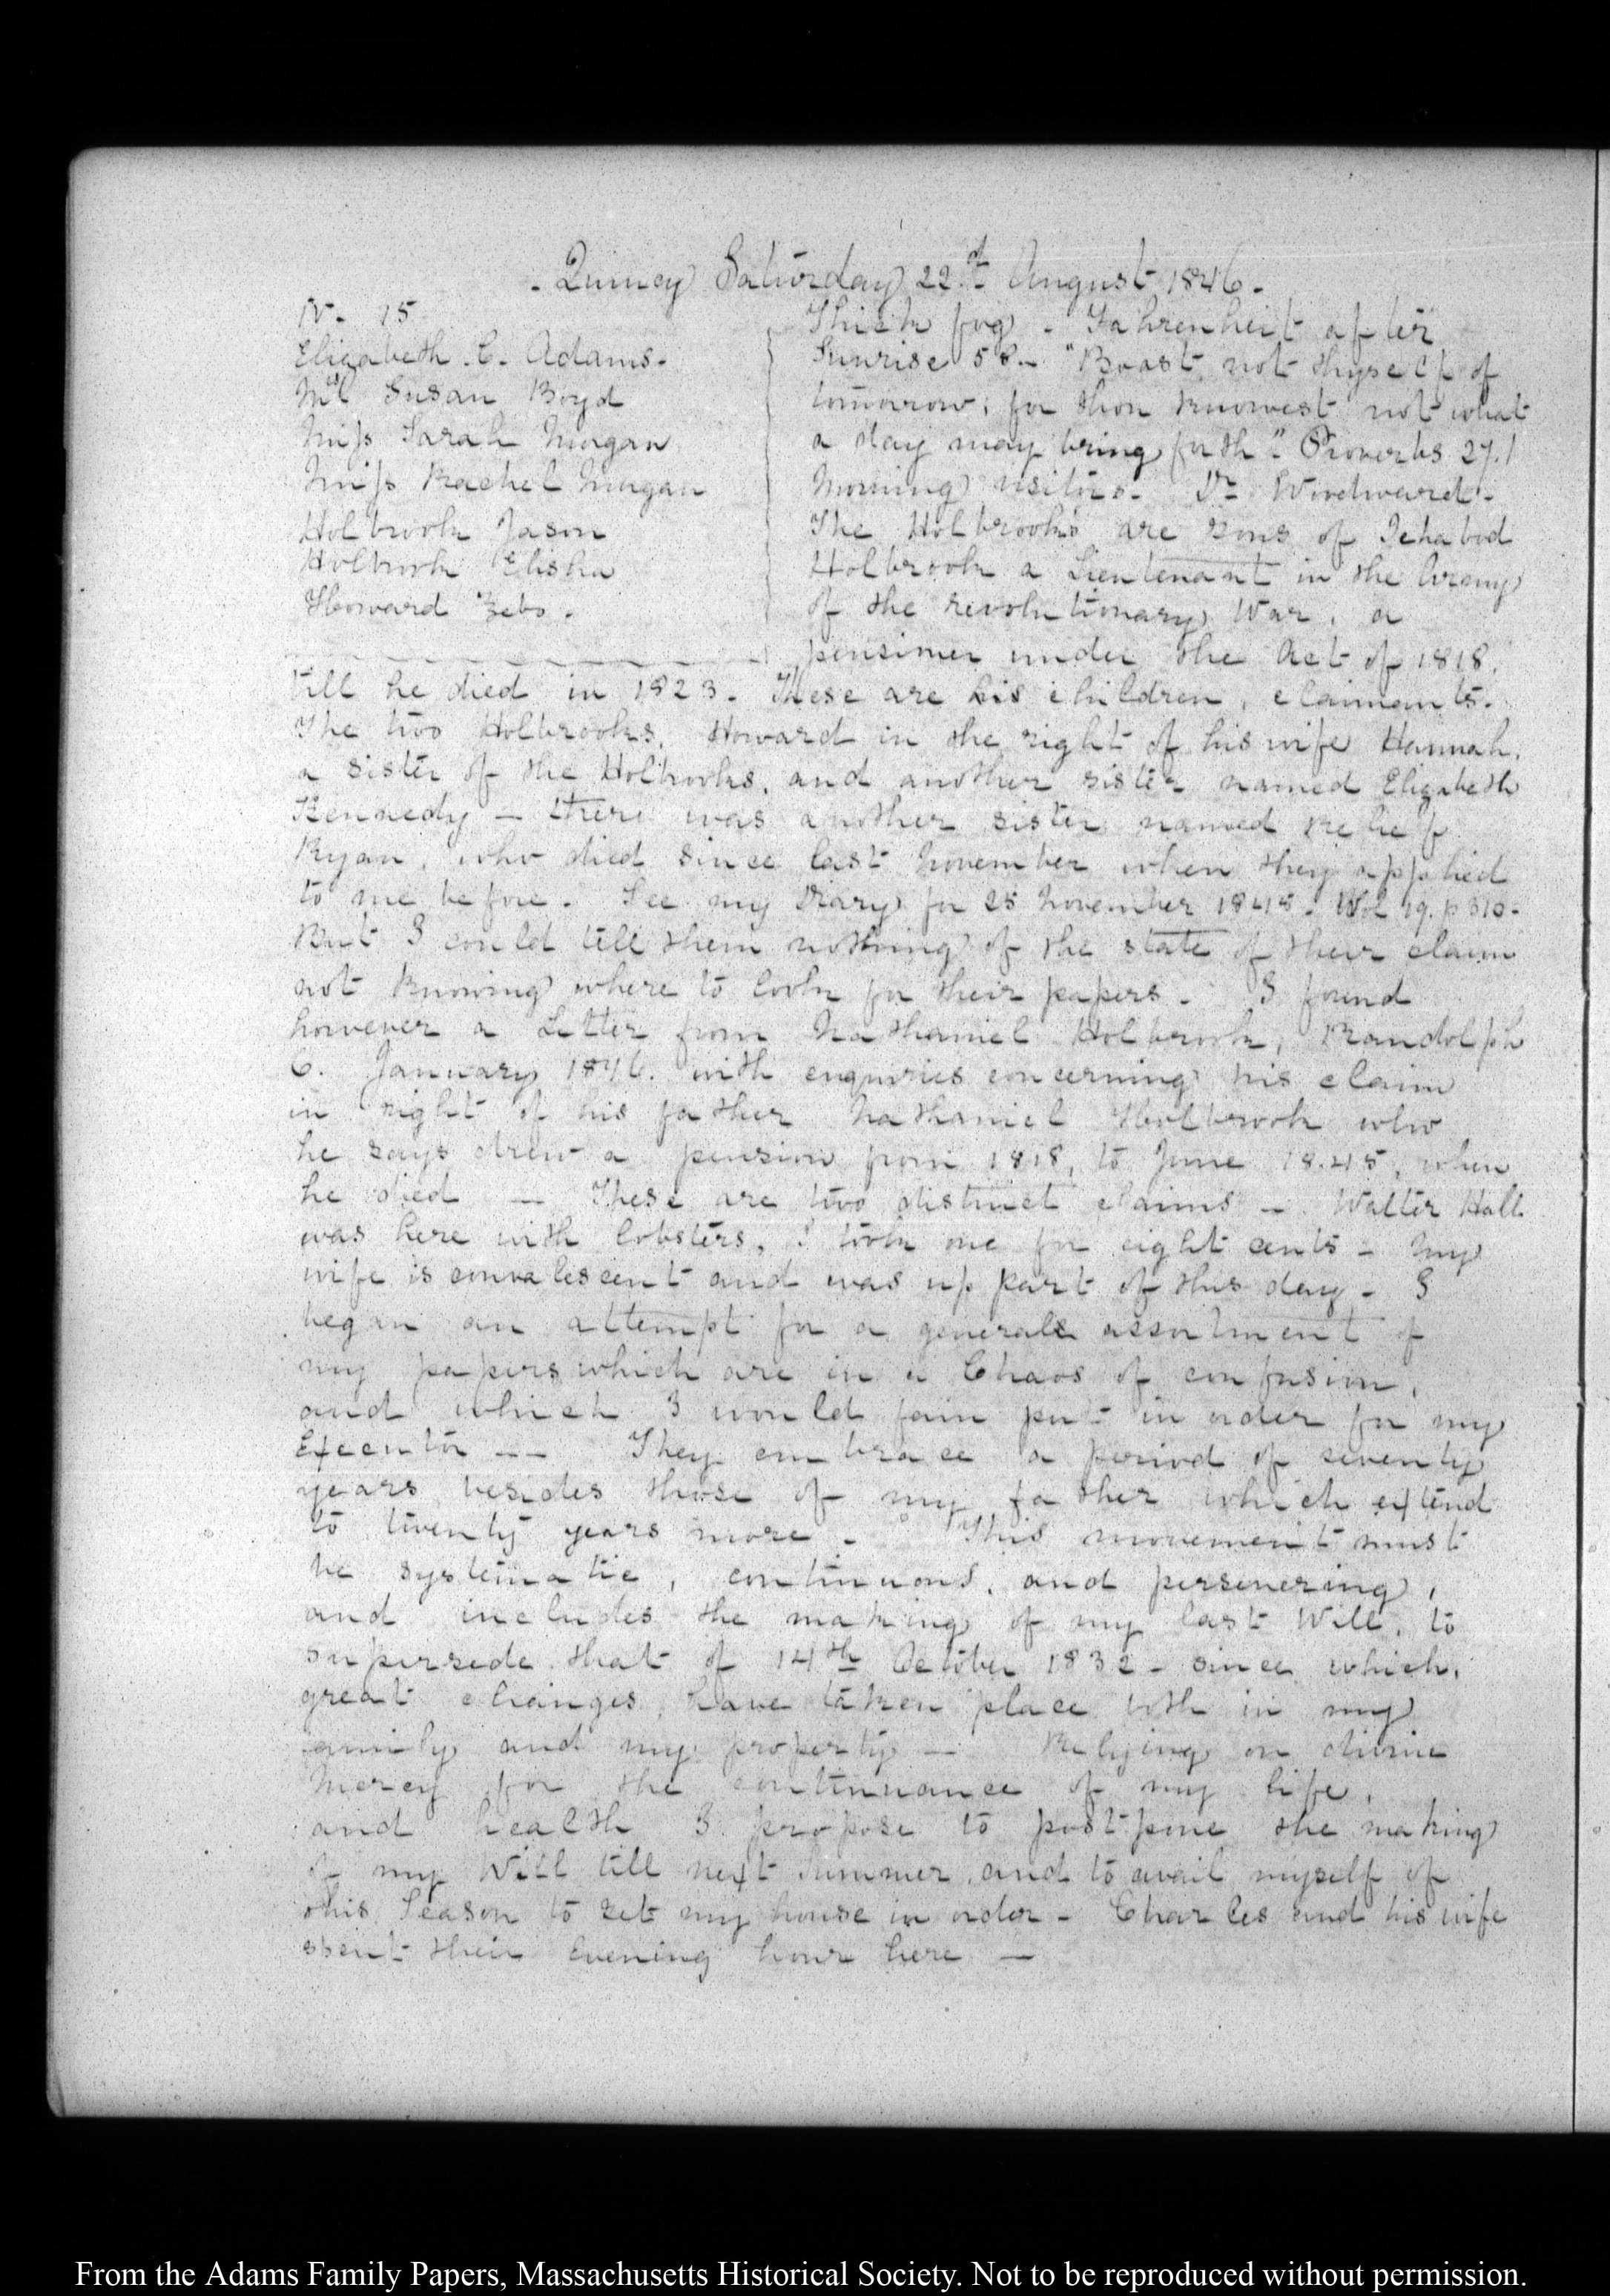 Quincy Saturday 22.d August 1846.
IV. 15
Elizabeth C. Adams.
Mrs Susan Boyd
Miss Sarah Morgan
Miss Rachel Morgan
Holbrook Jason
Holbrook Elisha
Howard Zebo.
Thick fog. Fahrenheit after
Sunrise 58. "Boast not thyself of
tomorrow; for thou knowest not what
a day may bring forth". Proverbs 27.1
Morning visitors. Dr Woodward.
The Holbrooks are sons of Ichabod
Holbrook a Lieutenant in the Army
of the revolutionary War, a
pensioner under the Act of 1818.
till he died in 1823. These are his children, claimants.
The two Holbrooks, Howard in the right of his wife Hannah,
a sister of the Holbrooks, and another sister named Elizabeth
Kennedy — there was another sister named Relief
Ryan, who died since last November when they applied
to me before. See my Diary for 25 November 1845. Vol 19. p 310.
But I could tell them nothing of the state of their claim
not knowing where to look for their papers. I found
however a Letter from Nathaniel Holbrook, Randolph
6. January 1846. with enquiries concerning his claim
in right of his father Nathaniel Holbrook who
he says drew a pension from 1818, to June 1845, when
he died — These are two distinct claims — Walter Hall
was here with lobsters, I took one for eight cents — My
wife is convalescent and was up part of this day — I
began an attempt for a general assortment of
my papers which are in a Chaos of confusion,
and which I would fain put in order for my
Executor -- They embrace a period of seventy
years besides those of my father which extend
to twenty years more. This movement must
be systematic, continuous, and persevering,
and includes the making of my last Will, to
supersede that of 14th October 1832 - since which,
great changes have taken place both in my
family and my property — Relying on divine
Mercy for the continuance of my life,
and health I propose to postpone the making
of my Will till next Summer, and to avail myself of
this Season to set my house in order — Charles and his wife
spent their Evening hour here —
From the Adams Family Papers, Massachusetts Historical Society. Not to be reproduced without permission.